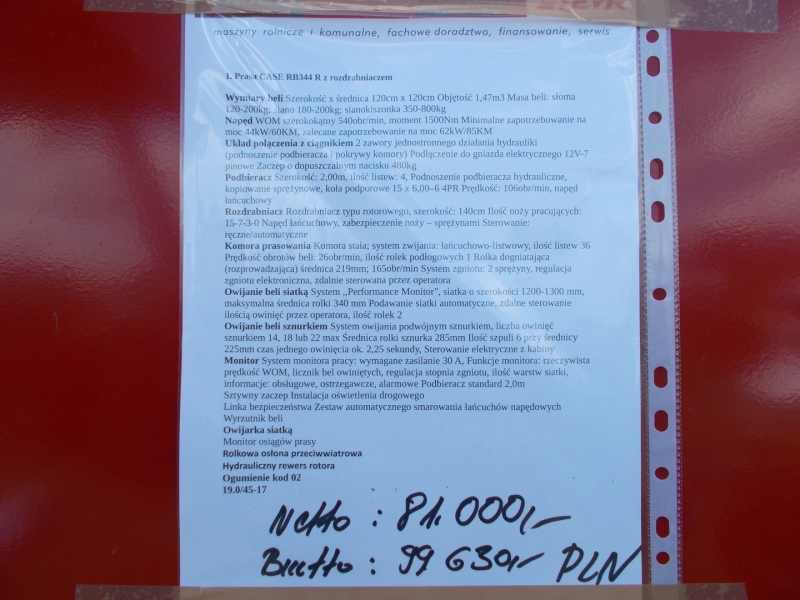 maszyny rolnicze i komunalne, fachowe doradztwo, finansowanie, serwis
1. Prasa CASE RB344 R z rozdrabniaczem
Wymiary beli Szerokość x średnica 120cm x 120cm Objętość 1,47m3 Masa beli: słoma
120-200kg, siano 180-200kg; sianokiszonka 350-800kg
Napęd WOM szerokokątny 540obr/min, moment 1500Nm Minimalne zapotrzebowanie na
moc 44kW/60KM, zalecane zapotrzebowanie na moc 62kW/85KM
Układ połączenia z ciągnikiem 2 zawory jednostronnego działania hydrauliki
(podnoszenie podbieracza i pokrywy komory) Podłączenie do gniazda elektrycznego 12V-7
pinowe Zaczep o dopuszczalnym nacisku 480kg
Podbieracz Szerokość: 2,00m, ilość listew: 4, Podnoszenie podbieracza hydrauliczne,
kopiowanie sprężynowe, koła podporowe 15 x 6,00–6 4PR Prędkość: 106obr/min, napęd
łańcuchowy
Rozdrabniacz Rozdrabniacz typu rotorowego, szerokość: 140cm Ilość noży pracujących:
15-7-3-0 Napęd łańcuchowy, zabezpieczenie noży – sprężynami Sterowanie:
ręczne/automatyczne
Komora prasowania Komora stała; system zwijania: łańcuchowo-listwowy, ilość listew 36
Prędkość obrotów beli: 26obr/min, ilość rolek podłogowych 1 Rolka dogniatająca
(rozprowadzająca) średnica 219mm; 165obr/min System zgniotu: 2 sprężyny, regulacja
zgniotu elektroniczna, zdalnie sterowana przez operatora
Owijanie beli siatką System „Performance Monitor”, siatka o szerokości 1200-1300 mm,
maksymalna średnica rolki 340 mm Podawanie siatki automatyczne, zdalne sterowanie
ilością owinięć przez operatora, ilość rolek 2
Owijanie beli sznurkiem System owijania podwójnym sznurkiem, liczba owinięć
sznurkiem 14, 18 lub 22 max Średnica rolki sznurka 285mm Ilość szpuli 6 przy średnicy
225mm czas jednego owinięcia ok. 2,25 sekundy, Sterowanie elektryczne z kabiny
Monitor System monitora pracy: wymagane zasilanie 30 A, Funkcje monitora: rzeczywista
prędkość WOM, licznik bel owiniętych, regulacja stopnia zgniotu, ilość warstw siatki,
informacje: obsługowe, ostrzegawcze, alarmowe Podbieracz standard 2,0m
Sztywny zaczep Instalacja oświetlenia drogowego
Linka bezpieczeństwa Zestaw automatycznego smarowania łańcuchów napędowych
Wyrzutnik beli
Owijarka siatką
Monitor osiągów prasy
Rolkowa osłona przeciwwiatrowa
Hydrauliczny rewers rotora
Ogumienie kod 02
19.0/45-17
Netto : 81.000,-
Brutto : 99 630,- PLN